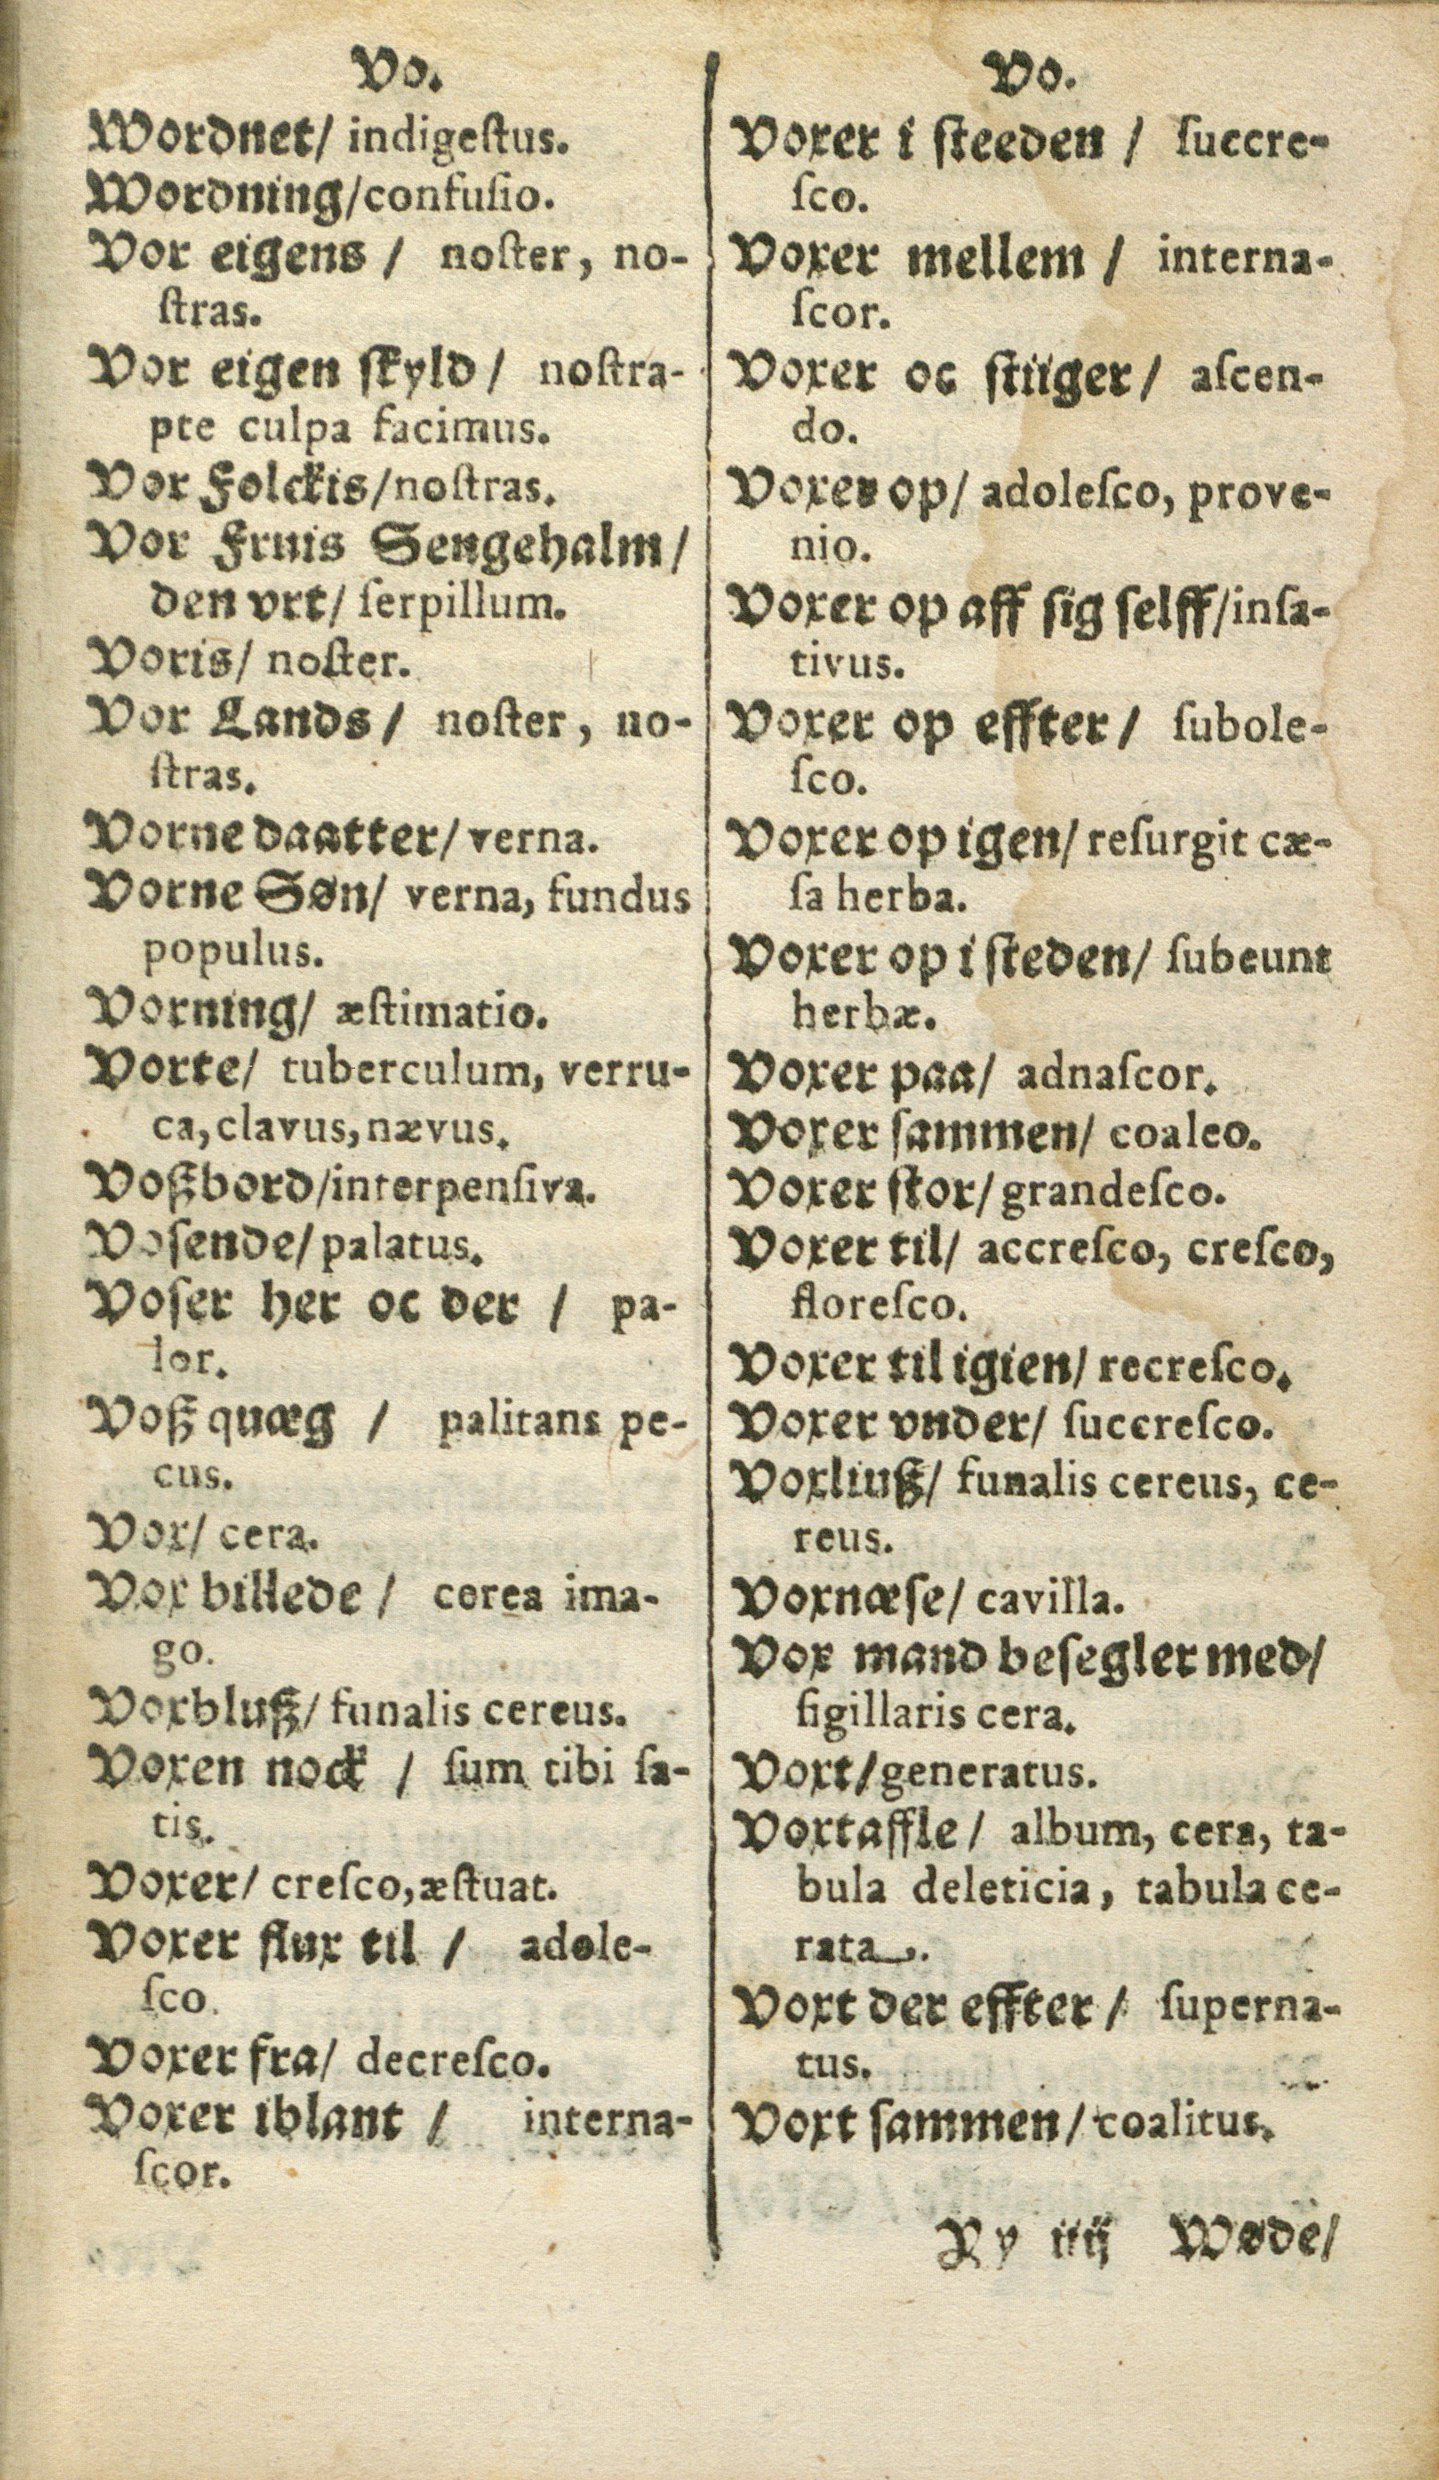 Vo.
Wordnet/ indigeſtus.
Wordning/confuſio.
Vor eigens / noſter, no-
ſtras.
Vor eigen ſkyld/ noſtra-
pte culpa facimus.
Vor Folckis/noſtras.
Vor Fruis Sengehalm/
den vrt/ ſerpillum.
Voris/ noſter.
Vor Lands/ noſter, no-
ſtras.
Vorne daatter/ verna.
Vorne Søn/ verna, fundus
populus.
Vorning/ æſtimatio.
Vorte/ tuberculum, verru-
ca, clavus, nævus.
Voßbord/interpenſiva.
Voſende/ palatus.
Voſer her oc der / pa-
lor.
Voß quæg / palitans pe-
cus.
Vox/ cera.
Vox billede / cerea ima-
go.
Voxbluß/ funalis cereus.
Voxen nock / ſum tibi ſa-
tis.
Voxer/ creſco, æſtuat.
Voxer flux til / adole-
ſco.
Voxer fra/ decreſco.
Voxer iblant / interna-
ſcor.
Vo.
Voxer i ſteeden / ſuccre-
ſco.
Voxer mellem / interna-
ſcor.
Voxer oc ſtiiger/ aſcen-
do.
Voxer op/ adoleſco, prove-
nio.
Voxer op aff ſig ſelff/inſa-
tivus.
Voxer op effter/ ſubole-
ſco.
Voxer op igen/ reſurgit cæ-
ſa herba.
Voxer op i ſteden/ ſubeunt
herbæ.
Voxer paa/ adnaſcor.
Voxer ſammen/ coaleo.
Voxer ſtor/ grandeſco.
Voxer til/ accreſco, creſco,
floreſco.
Voxer til igien/ recreſco.
Voxer vnder/ ſuccreſco.
Voxliuß/ funalis cereus, ce-
reus.
Voxnæſe/ cavilla.
Vox mand beſegler med/
ſigillaris cera.
Voxt/generatus.
Voxtaffle/ album, cera, ta-
bula deleticia, tabula ce-
rata.
Voxt der effter/ ſuperna-
tus.
Voxt ſammen/ coalitus.
Yy iiij Wøde/